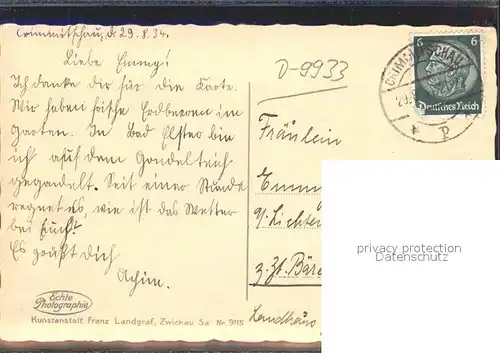 Crimmitschau, d. 29.8.34.
Liebe Emmy!
Ich danke dir für die Karte.
Wir haben frische Erdbeeren im
Garten. In Bad Elster bin
ich auf dem Gondelteich
gegondelt. Seit einer Stunde
regnet es, wie ist das Wetter
bei Euch?
Es grüßt dich
Achim.
Echte
Photographie
Kunstanstalt Franz Landgraf, Zwickau Sa. Nr. 9115
D-9933
6 6
Deutsches Reich
Fräulein
Emmy
z. Zt. Bäre
Landhaus
privacy protection
Datenschutz